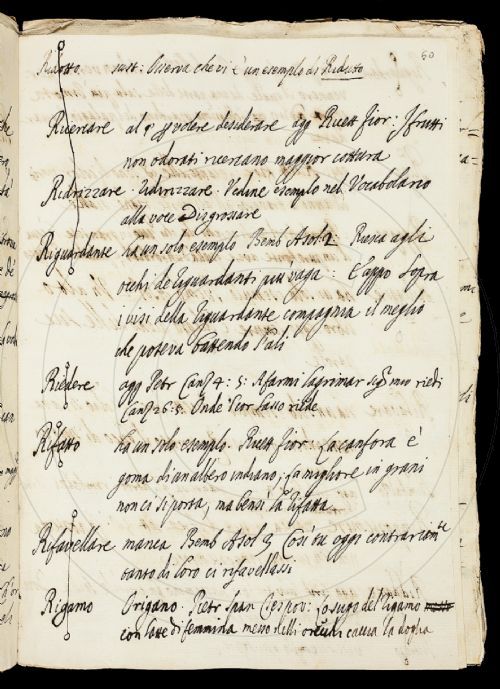 60
Ridotto. sust: Osserva che vi è un esempio di Ridutto
Ricercare al § p volere desiderare agg Ricett Fior: I frutti
non odorati ricercano maggior cottura
Ridrizzare. Ridirizzare. Vedine esempio nel Vocabolario
alla voce Disgrossare
Riguardante ha un solo esempio Bemb Asol 2: Riesca agli
occhi de riguardanti più vaga: E appo sopra
i visi della riguardante compagnia il meglio
che poteva battendo l'ali
Riedere agg Petr Canz 4: 5: A farmi lagrimar sig.r mio riedi
Canz 26: 5. Onde 'l cor lasso riede
Rifatto ha un solo esempio. Ricett Fior: La canfora è
goma di un albero indiano; la migliore in grani
non ci si porta, ma bensì la rifatta.
Rifavellare manca Bemb Asol 3 Così tu oggi contrariam.te
tanto di loro ci rifavellassi
Rigamo Origano. Pietr Span Cespov: Lo sugo del rigamo
con latte di femmina messo nelli orecchi caccia la doglia